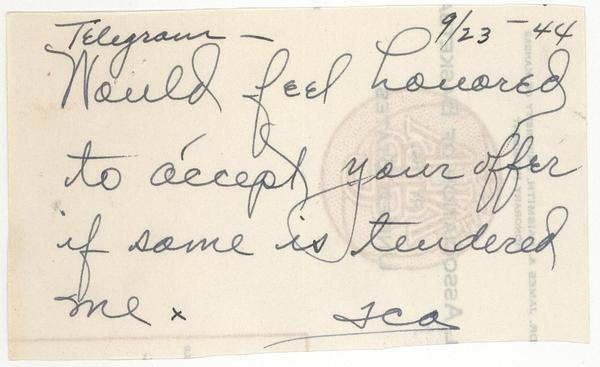 Telegram — 9/23-44
Would feel honored
to accept your offer
if same is tendered
me. x FCA